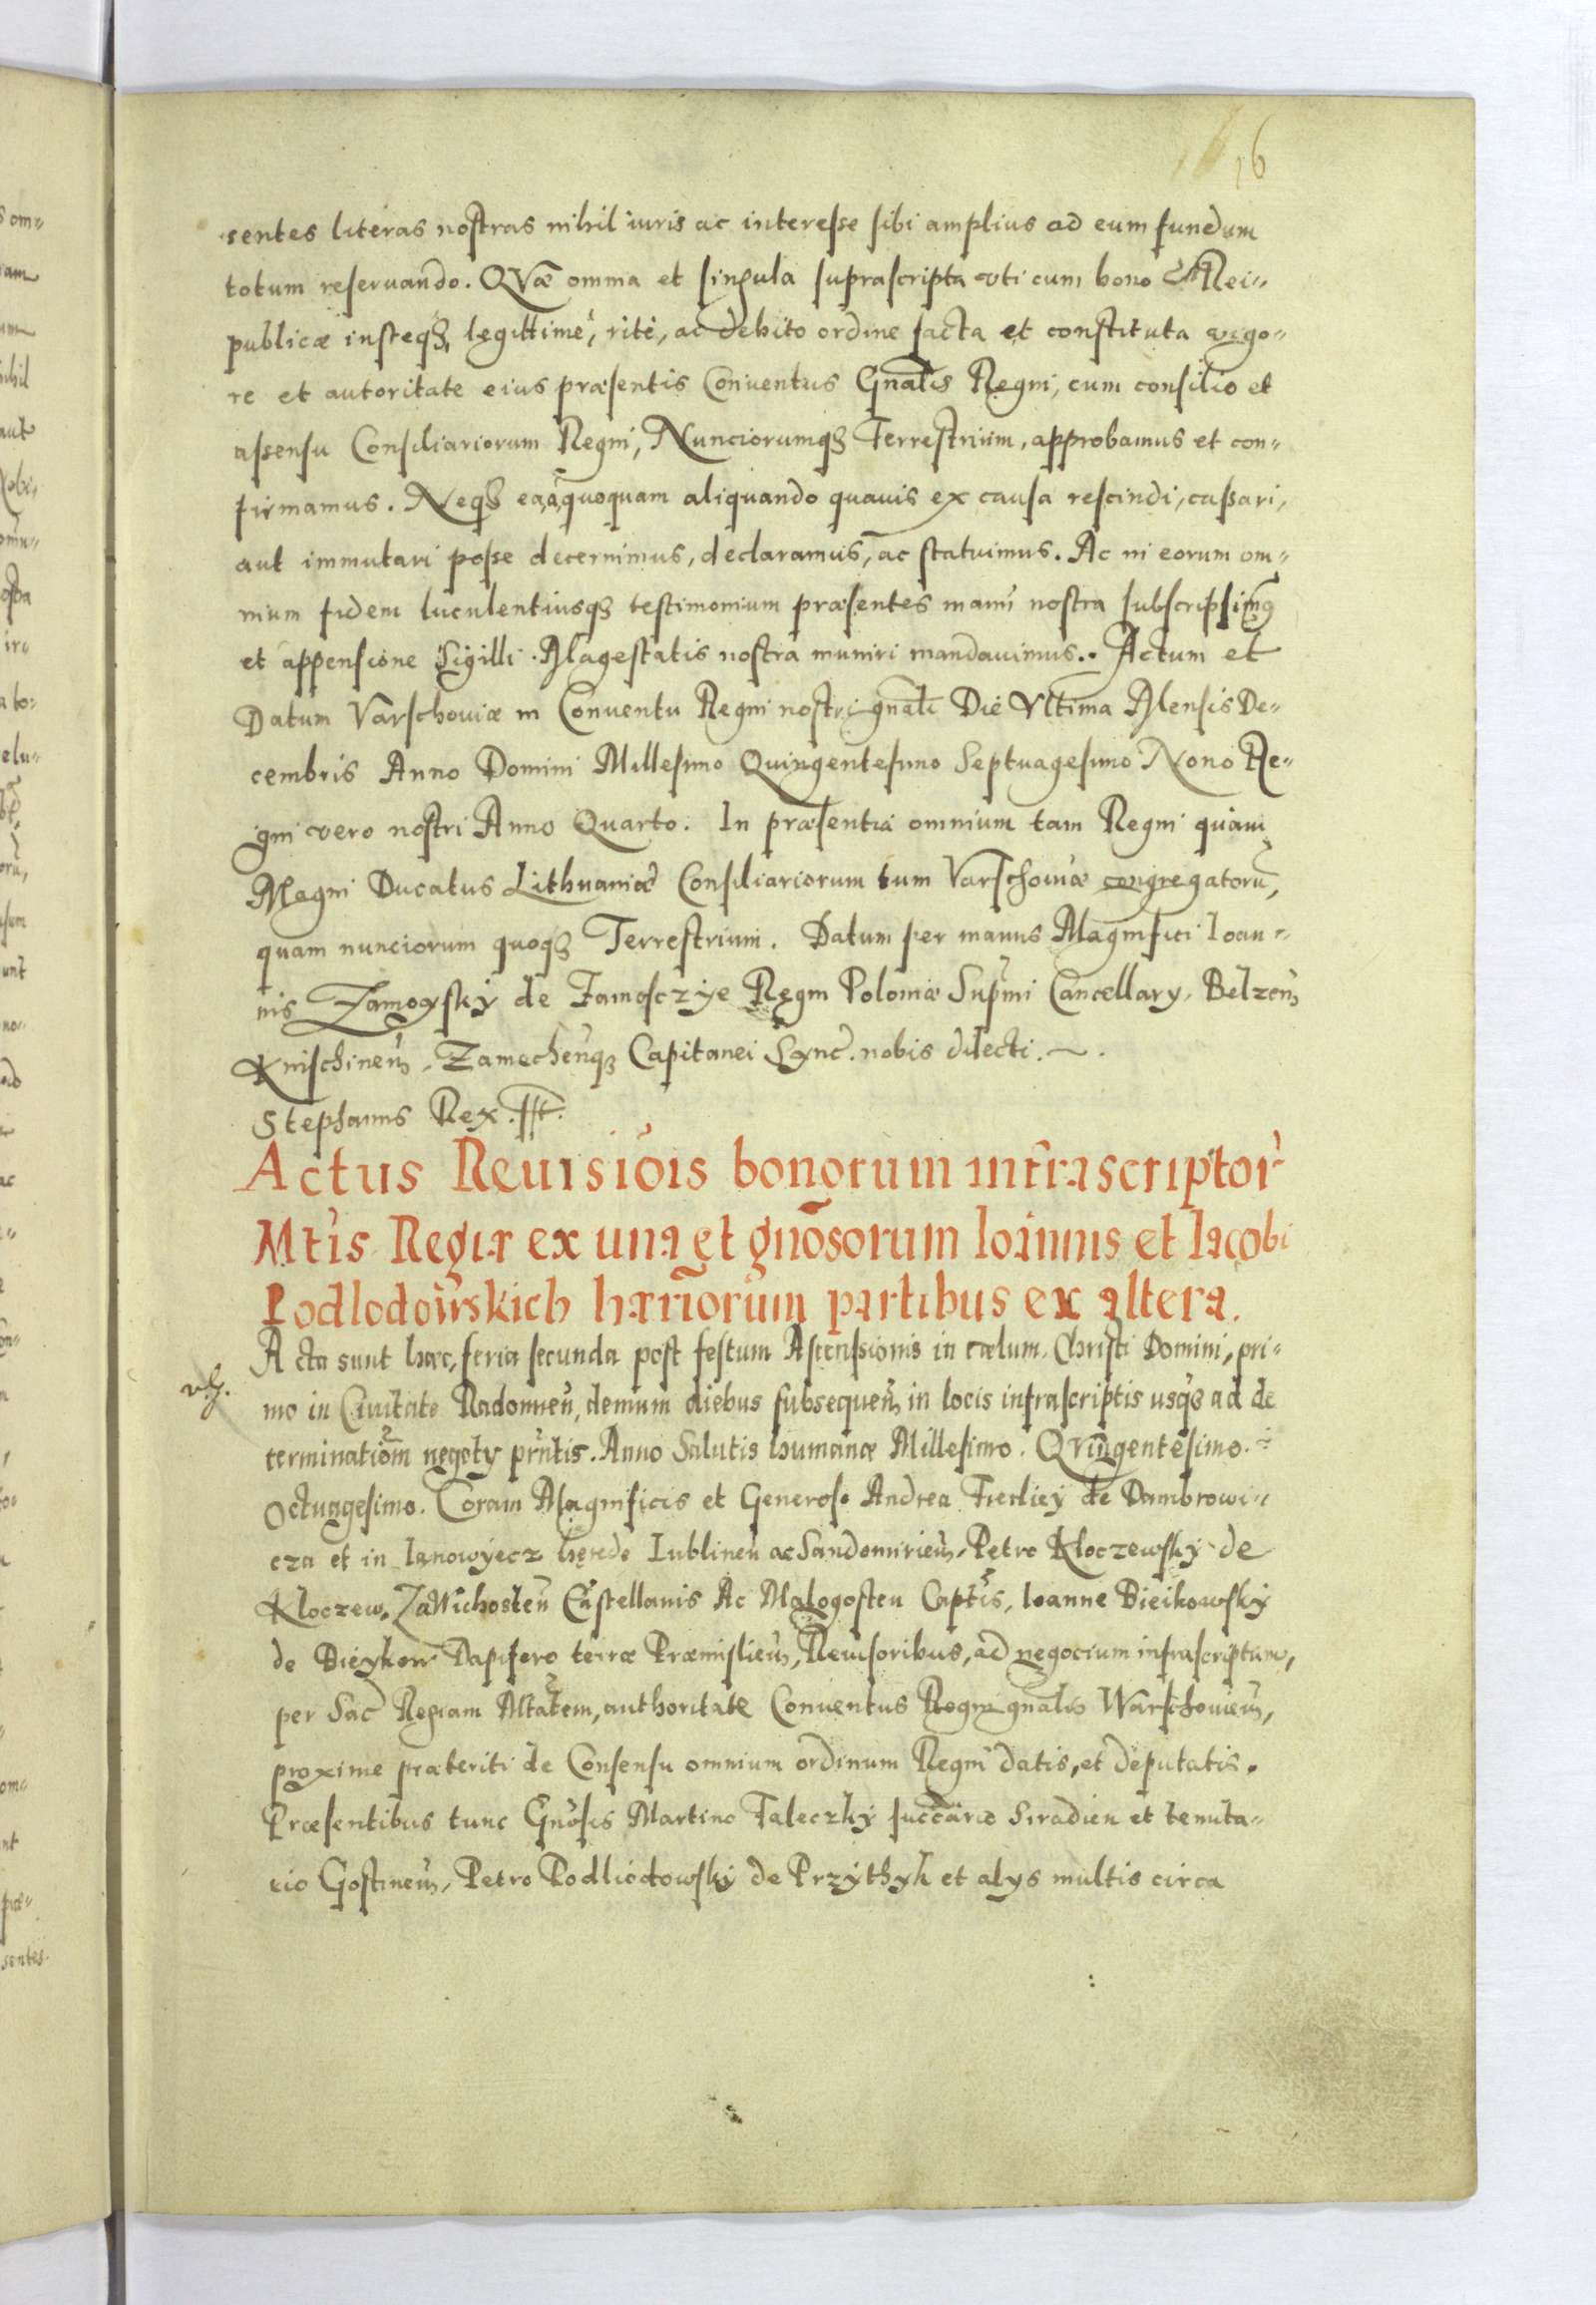 16
sentes literas nostras nihil iuris ac interesse sibi amplius ad eum fundum
totum reseruando. QVæ omnia et singula suprascripta vti cum bono Rei-
publicæ iusteq3 legittimè, ritè, ac debito ordine facta et constituta vigo-
re et autoritate eius præsentis Conuentus Gnalis Regni, cum consilio et
assensu Consiliariorum Regni, Nunciorumq3 Terrestrium, approbamus et con-
firmamus. Neq3 ea, à quoquam aliquando quauis ex causa rescindi, cassari,
aut immutari posse decernimus, declaramus, ac statuimus. Ac in eorum om-
nium fidem luculentiusq3 testimonium præsentes manu nostra subscripsim9
et appensione Sigilli Magestatis nostra muniri mandauimus. Actum et
Datum Varschouiæ in Conuentu Regni nostri gnali Die Vltima Mensis De-
cembris Anno Domini Millesimo Quingentesimo Septuagesimo Nono Re-
gni vero nostri Anno Quarto. In præsentia omnium tam Regni quam
Magni Ducatus Lithuaniæ Consiliariorum tum Varschouiæ congregatorū,
quam nunciorum quoq3 Terrestrium. Datum per manus Magnifici Ioan-
nis Zamoysky de Zamosczye Regni Poloniæ Supmi Cancellary, Belzeñ
Knischineñ, Zamecheñq3 Capitanei Sync. nobis dilecti.
Stephanus Rex. sst.
Actus Reuisiõis bonorum infrascriptor
Mtis Regiæ ex una et gnõsorum Ioannis et Iacobi
Podlodowskich hæriorum partibus ex altera.
Acta sunt hæc, feria secunda post festum Ascensionis in cælum, Christi Domini, pri-
mo in Ciuitate Radomieñ, demum diebus subsequeñ in locis infrascriptis usq3 ad de
terminatiom negoty prntis. Anno Salutis humanæ Millesimo. QVingentesimo.
Octuagesimo. Coram Magnificis et Generoso Andrea Firliey de Dambrowi-
cza et in Ianowyecz hęrede Lublineñ ac Sandomirieñ, Petro Kloczewsky de
Kloczew, ZaWichosteñ Castellanis Ac Malogosteñ Captis, Ioanne Bieikowsky
de Bieykow Dapifero terræ Præmislieñ, Reuisoribus, ad negocium infrascriptum,
per Sac Regiam Mtatem, authoritate Conuentus Regni gnalis Warschouieñ,
proxime præteriti de Consensu omnium ordinum Regni datis, et deputatis.
Præsentibus tunc Gnosis Martino Faleczky succario Siradieñ et tenuta-
rio Gostineñ, Petro Podliodowsky de Przythyk et alys multis circa